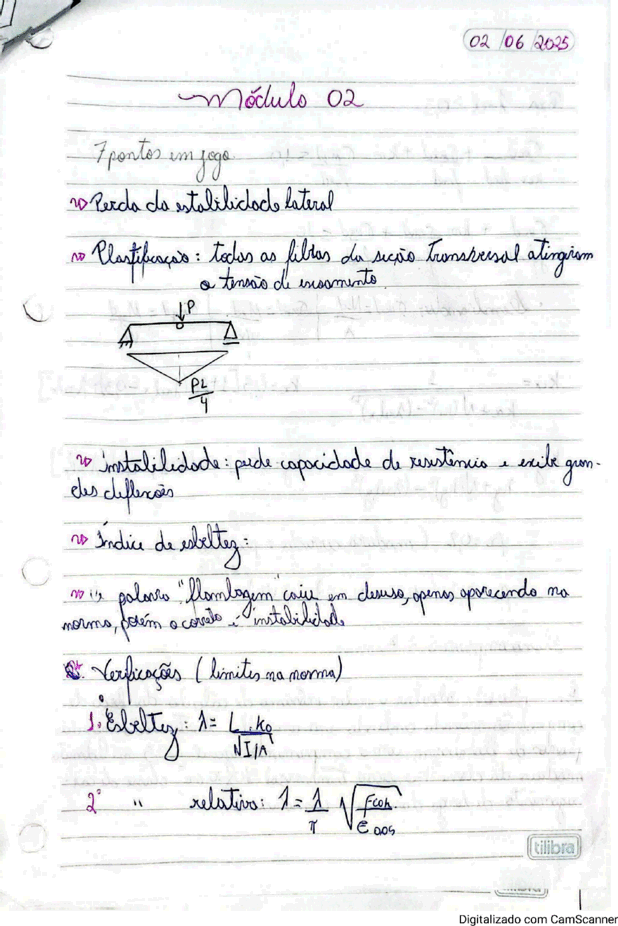 02 / 06 / 2025
Módulo 02
7 pontos em jogo
Perda da estabilidade lateral
Plastificação: todas as fibras da seção transversal atingiram
a tensão de escoamento.
P
PL
4
instabilidade: perde capacidade de resistência e exibe gran-
des deflexões
Índice de esbeltez:
palavra "flambagem" caiu em desuso, apenas aparecendo na
norma, porém o correto é instabilidade
Verificações (limites na norma)
1. Esbeltez: λ = L . K0
√I/A
2° " relativa: λ = λ √ Fc0k
π E 0,05
tilibra
Digitalizado com CamScanner